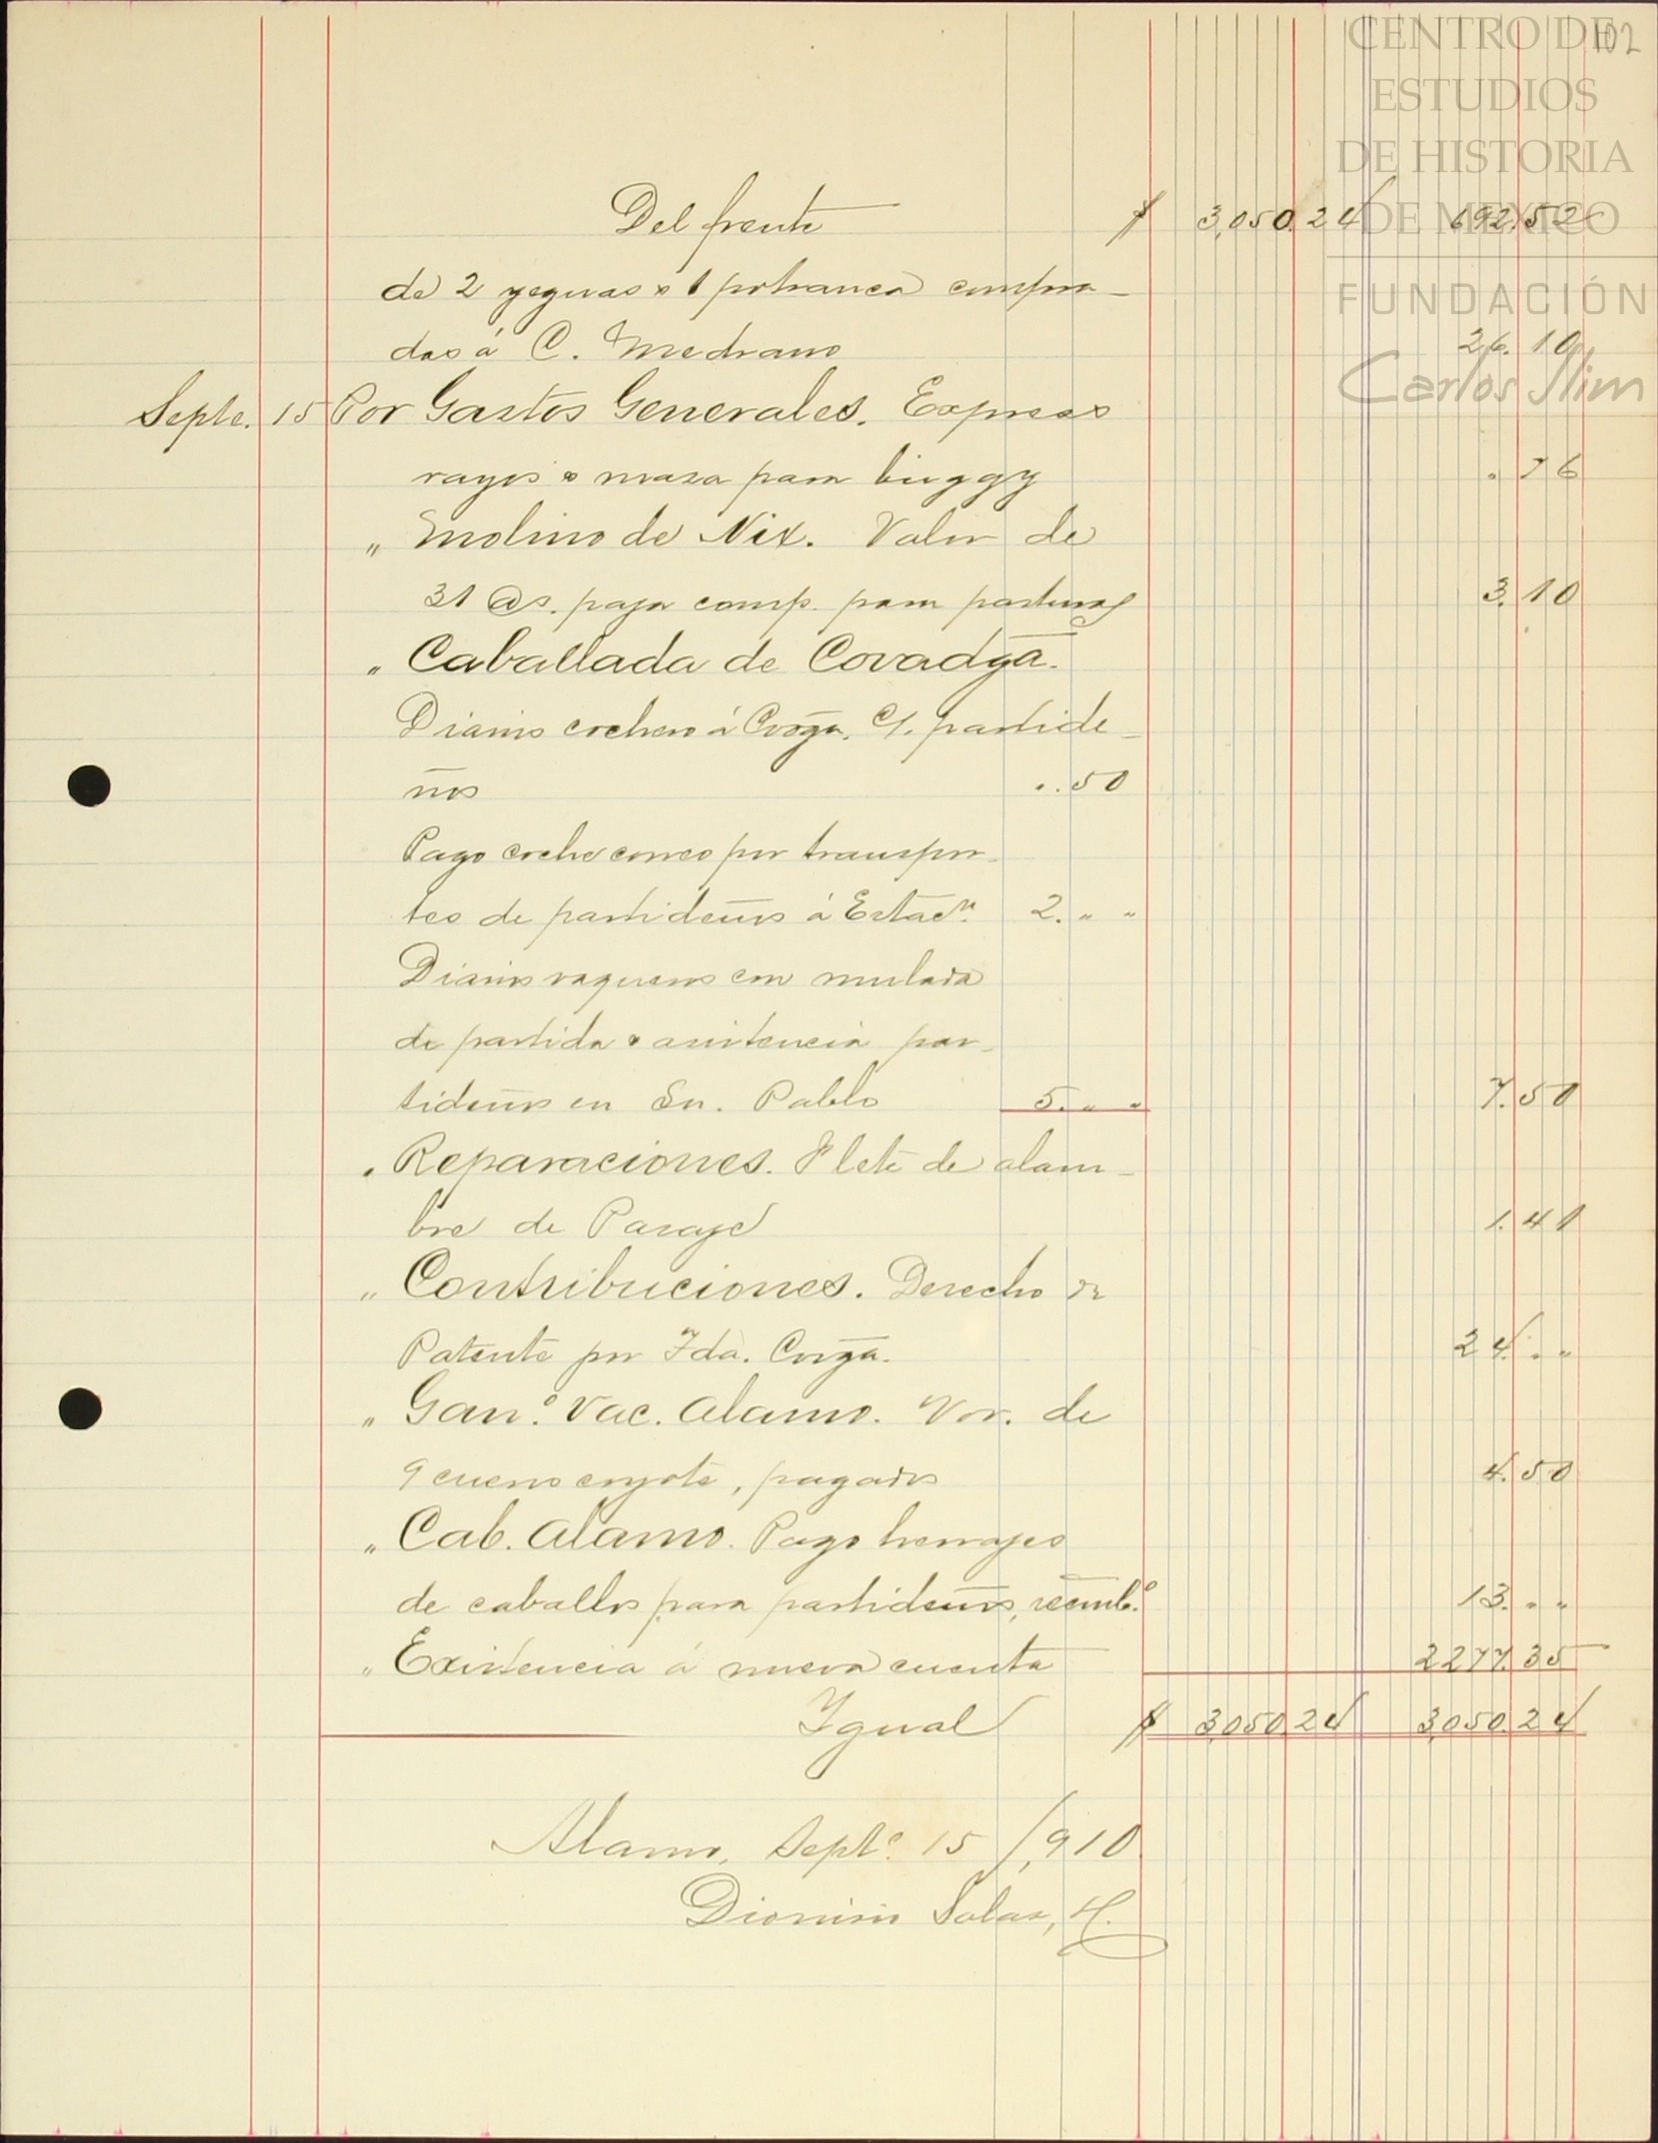 102
CENTRO DE
ESTUDIOS
DE HISTORIA
DE MEXICO
FUNDACIÓN
Carlos Slim
Del frente $ 3,050.24 692.52
de 2 yeguas & 1 potranca compra-
das á C. Medrano 26.10
Septe. 15 Por Gastos Generales. Express
rayos & maza para buggy . 76
" Molino de Nix. Valor de
31 @s. paja comp. para pasturas 3.10
" Caballada de Covadga.
Diarios cochero á Cvga. C/. partide-
ños . . 50
Pago coche correo por transpor-
tes de partideños á Estacn. 2. " "
Diarios vaqueros con mulada
de partida & asistencia par-
tideños en Sn. Pablo 5. " " 7.50
" Reparaciones. Flete de alam-
bre de Pasaje 1.41
" Contribuciones. Derecho de
Patente por Fda. Cvga. 24. " "
" Gan.º Vac. Alamo. Vor. de
9 cueros coyote, pagados 4.50
" Cab. Alamo. Pago herrajes
de caballos para partideños, reemb.º 13. " "
" Existencia á nueva cuenta 2277.35
Igual $ 3,050.24 3,050.24
Alamo, Septe. 15/910
Dionisio Salas, H.